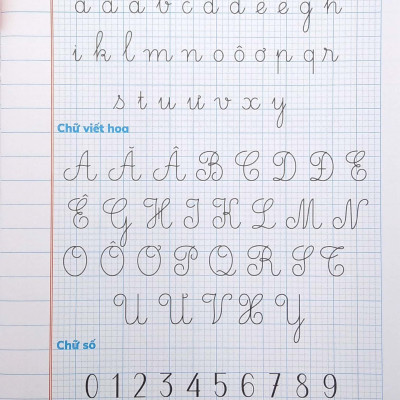 a ă â b c d đ e ê g h
i k l m n o ô ơ p q r
s t u ư v x y
Chữ viết hoa
A Ă Â B C D Đ E
Ê G H I K L M N
O Ô Ơ P Q R S T
U Ư V X Y
Chữ số
0 1 2 3 4 5 6 7 8 9